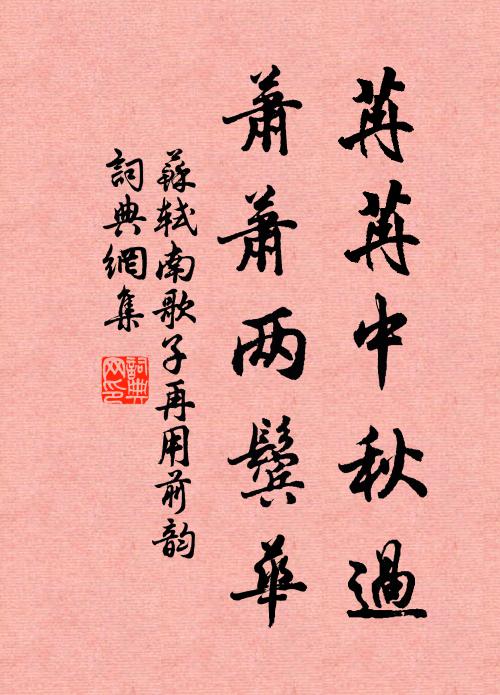 苒苒中秋過
蕭蕭两鬢華
蘇轼南歌子再用前韵
詞典網集
詞典网印